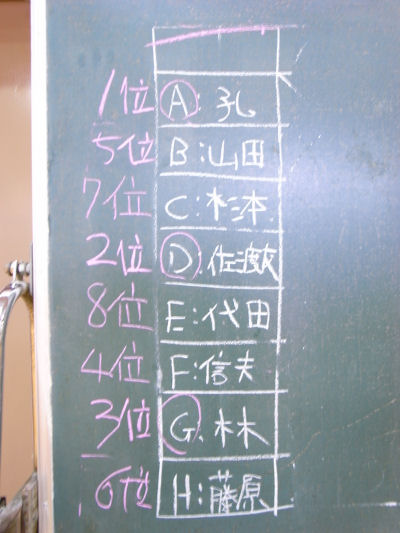 1位 A:孔
5位 B:山田
7位 C:杉本
2位 D:佐渡友
8位 E:代田
4位 F:信夫
3位 G:林
6位 H:藤原